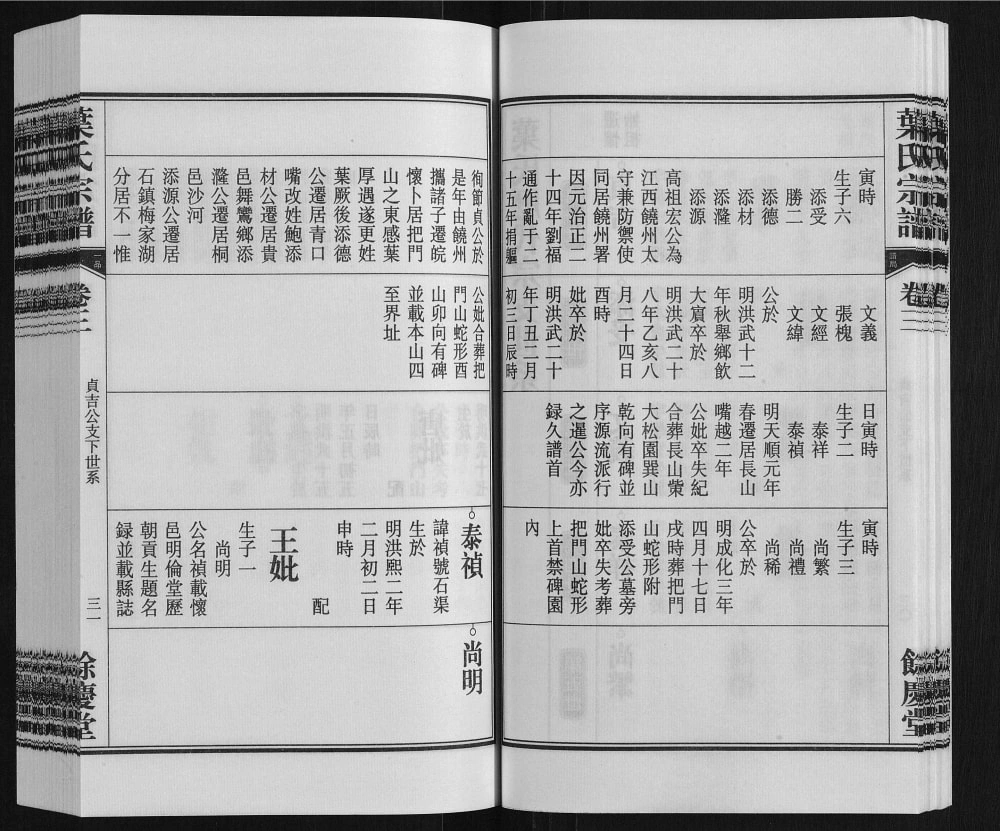 葉氏宗譜
卷三
餘慶堂
寅時
生子六
添受
勝二
添德
添材
添漋
添源
高祖宏公為
江西饒州太
守兼防禦使
同居饒州署
因元治正二
十四年劉福
通作亂于二
十五年捐軀
文義
張槐
文經
文緯
公於
明洪武十二
年秋舉鄉飲
大賔卒於
明洪武二十
八年乙亥八
月二十四日
酉時
妣卒於
明洪武二十
年丁丑二月
初三日辰時
日寅時
生子二
泰祥
泰禎
明天順元年
春遷居長山
嘴越二年
公妣卒失紀
合葬長山棠
大松園巽山
乾向有碑並
序源流派行
之暹公今亦
録久譜首
寅時
生子三
尚繁
尚禮
尚稀
公卒於
明成化三年
四月十七日
戌時葬把門
山蛇形附
添受公墓旁
妣卒失考葬
把門山蛇形
上首禁碑園
內
徇節貞公於
是年由饒州
攜諸子遷皖
懷卜居把門
山之東感葉
厚遇遂更姓
葉厥後添德
公遷居青口
嘴改姓鮑添
材公遷居貴
邑舞鸞鄉添
漋公遷居桐
邑沙河
添源公遷居
石鎮梅家湖
分居不一惟
公妣合葬把
門山蛇形酉
山卯向有碑
並載本山四
至界址
泰禎
諱禎號石渠
生於
明洪熙二年
二月初二日
申時
配
王妣
生子一
尚明
公名禎載懷
邑明倫堂歷
朝貢生題名
録並載縣誌
尚明
葉氏宗譜
一品
卷三
貞吉公支下世系
三一
餘慶堂